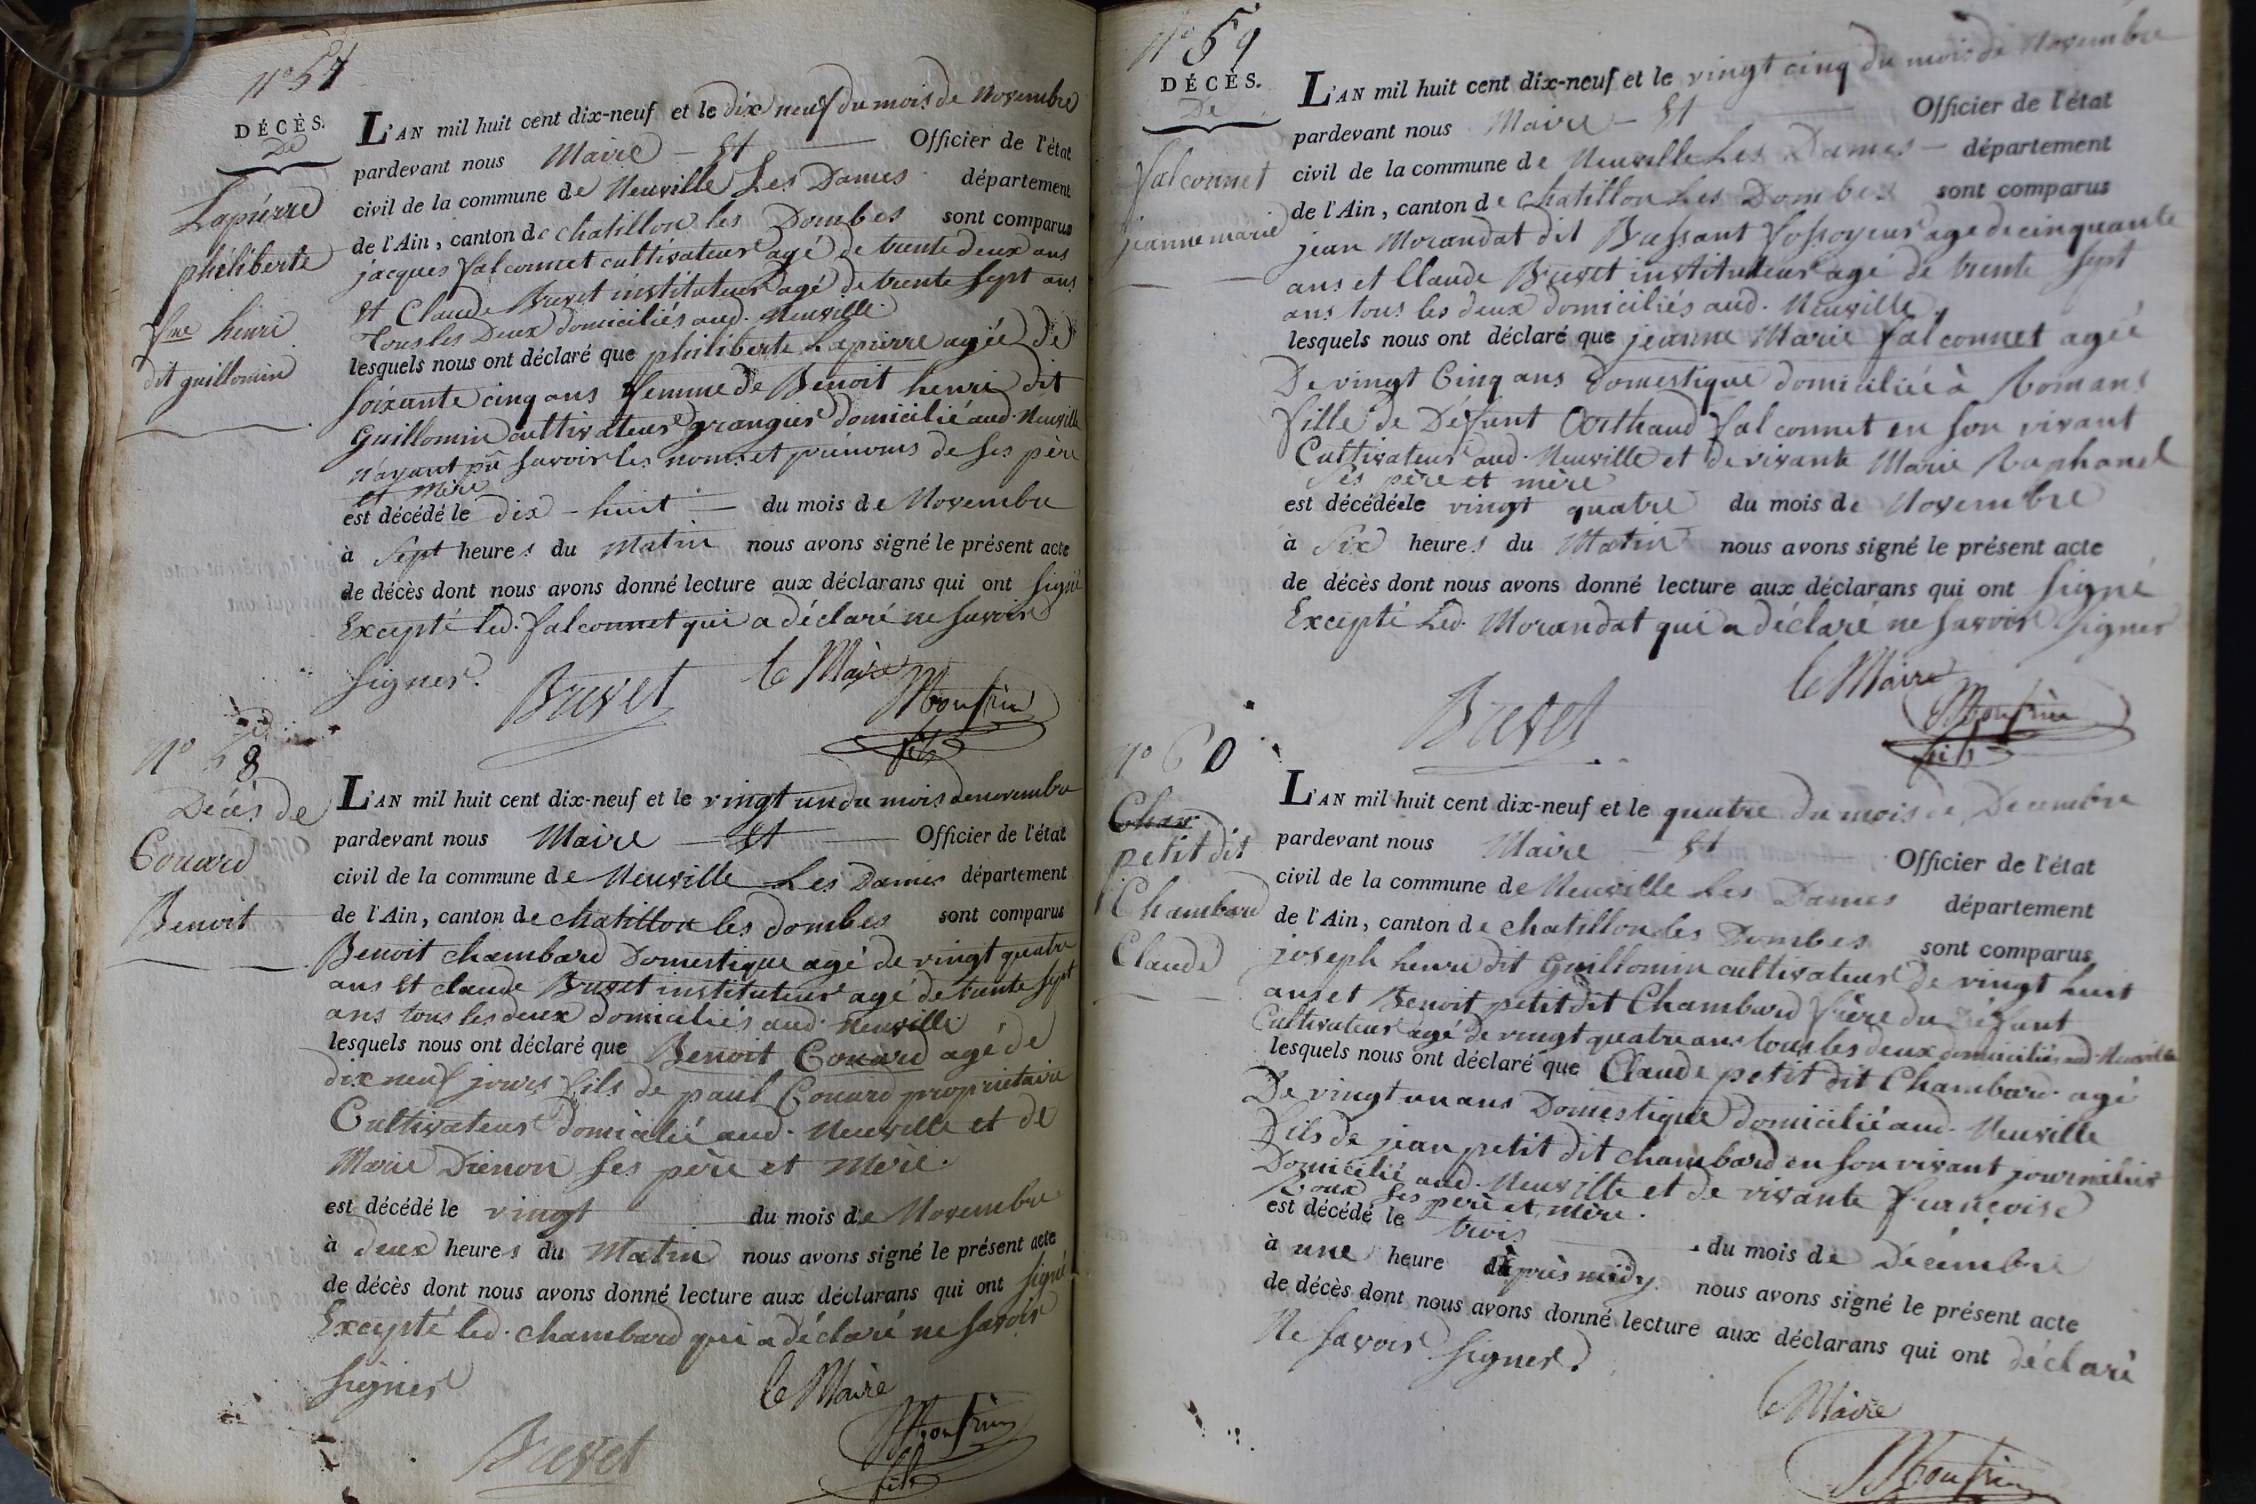 N° 57
DÉCÈS.
De
Lapierre
philiberte
fme henri
dit guillomin
L'AN mil huit cent dix-neuf et le dix neuf du mois de Novembre
pardevant nous Maire Et Officier de l'état
civil de la commune de Neuville Les Dames département
de l'Ain, canton de chatillon les Dombes sont comparus
jacques falconnet cultivateur agé de trente deux ans
Et Claude Brevet instituteur agé de trente sept ans
Tous les Deux domiciliés aud. Neuville
lesquels nous ont déclaré que philiberte Lapierre agée De
soixante cinq ans femme de Benoit henri dit
Guillomin cultivateur grangier domicilié aud. Neuville
N'ayant pû savoir les noms et prénoms de ses père
et mère
est décédé le dix - huit du mois de Novembre
à Sept heures du Matin nous avons signé le présent acte
de décès dont nous avons donné lecture aux déclarans qui ont signé
Excepté led. falconnet qui a déclaré ne savoir
signer.
Brevet le Maire
Monfrin
fils
N° 58
Décès de
Couard
Benoit
L'AN mil huit cent dix-neuf et le vingt un du mois de novembre
pardevant nous Maire Et Officier de l'état
civil de la commune de Neuville Les Dames département
de l'Ain, canton de chatillon les dombes sont comparus
Benoit chambard Domestique agé de vingt quatre
ans Et claude Brevet instituteur agé de trente sept
ans tous les deux domiciliés aud. Neuville
lesquels nous ont déclaré que Benoit Couard agé de
dix neuf jours fils de paul Couard propriétaire
Cultivateur domicilié aud. Neuville et de
Marie Drenon ses père et mère.
est décédé le vingt du mois de Novembre
à deux heures du Matin nous avons signé le présent acte
de décès dont nous avons donné lecture aux déclarans qui ont signé
Excepté led. chambard qui a déclaré ne savoir
signer
le Maire
Brevet Monfrin
fils
N° 59
DÉCÈS.
De
falconnet
jeanne marie
L'AN mil huit cent dix-neuf et le vingt cinq du mois de Novembre
pardevant nous Maire Et Officier de l'état
civil de la commune de Neuville Les Dames département
de l'Ain, canton de chatillon Les Dombes sont comparus
jean Morandat dit Bussant fossoyeur age de cinquante
ans et Claude Brevet instituteur agé de trente sept
ans tous les deux domiciliés aud. Neuville,
lesquels nous ont déclaré que jeanne Marie falconnet agée
De vingt Cinq ans domestique domiciliée à Romans
fille de Défunt Orthaud falconnet en son vivant
Cultivateur aud. Neuville et de vivante Marie Raphanel
Ses père et mère
est décédée le vingt quatre du mois de Novembre
à Six heures du Matin nous avons signé le présent acte
de décès dont nous avons donné lecture aux déclarans qui ont signé
Excepté Led. Morandat qui a déclaré ne savoir signer
le Maire
Brevet Monfrin
fils
N° 60
Chan
petit dit
Chambard
Claude
L'AN mil huit cent dix-neuf et le quatre du mois de Decembre
pardevant nous Maire Et Officier de l'état
civil de la commune de Neuville Les Dames département
de l'Ain, canton de chatillon les Dombes sont comparus
joseph henri dit Guillomin cultivateur de vingt huit
ans et Benoit petit dit Chambard frère du Défunt
Cultivateur agé de vingt quatre ans tous les deux domiciliés aud. Neuville
lesquels nous ont déclaré que Claude petit dit Chambard agé
De vingt un ans Domestique domicilié aud. Neuville
fils de jean petit dit chambard en son vivant journalier
Domicilié aud. Neuville et de vivante françoise
Roux ses père et mère.
est décédé le trois du mois de Décembre
à une heure après midy. nous avons signé le présent acte
de décès dont nous avons donné lecture aux déclarans qui ont déclaré
Ne savoir signer.
le Maire
Monfrin